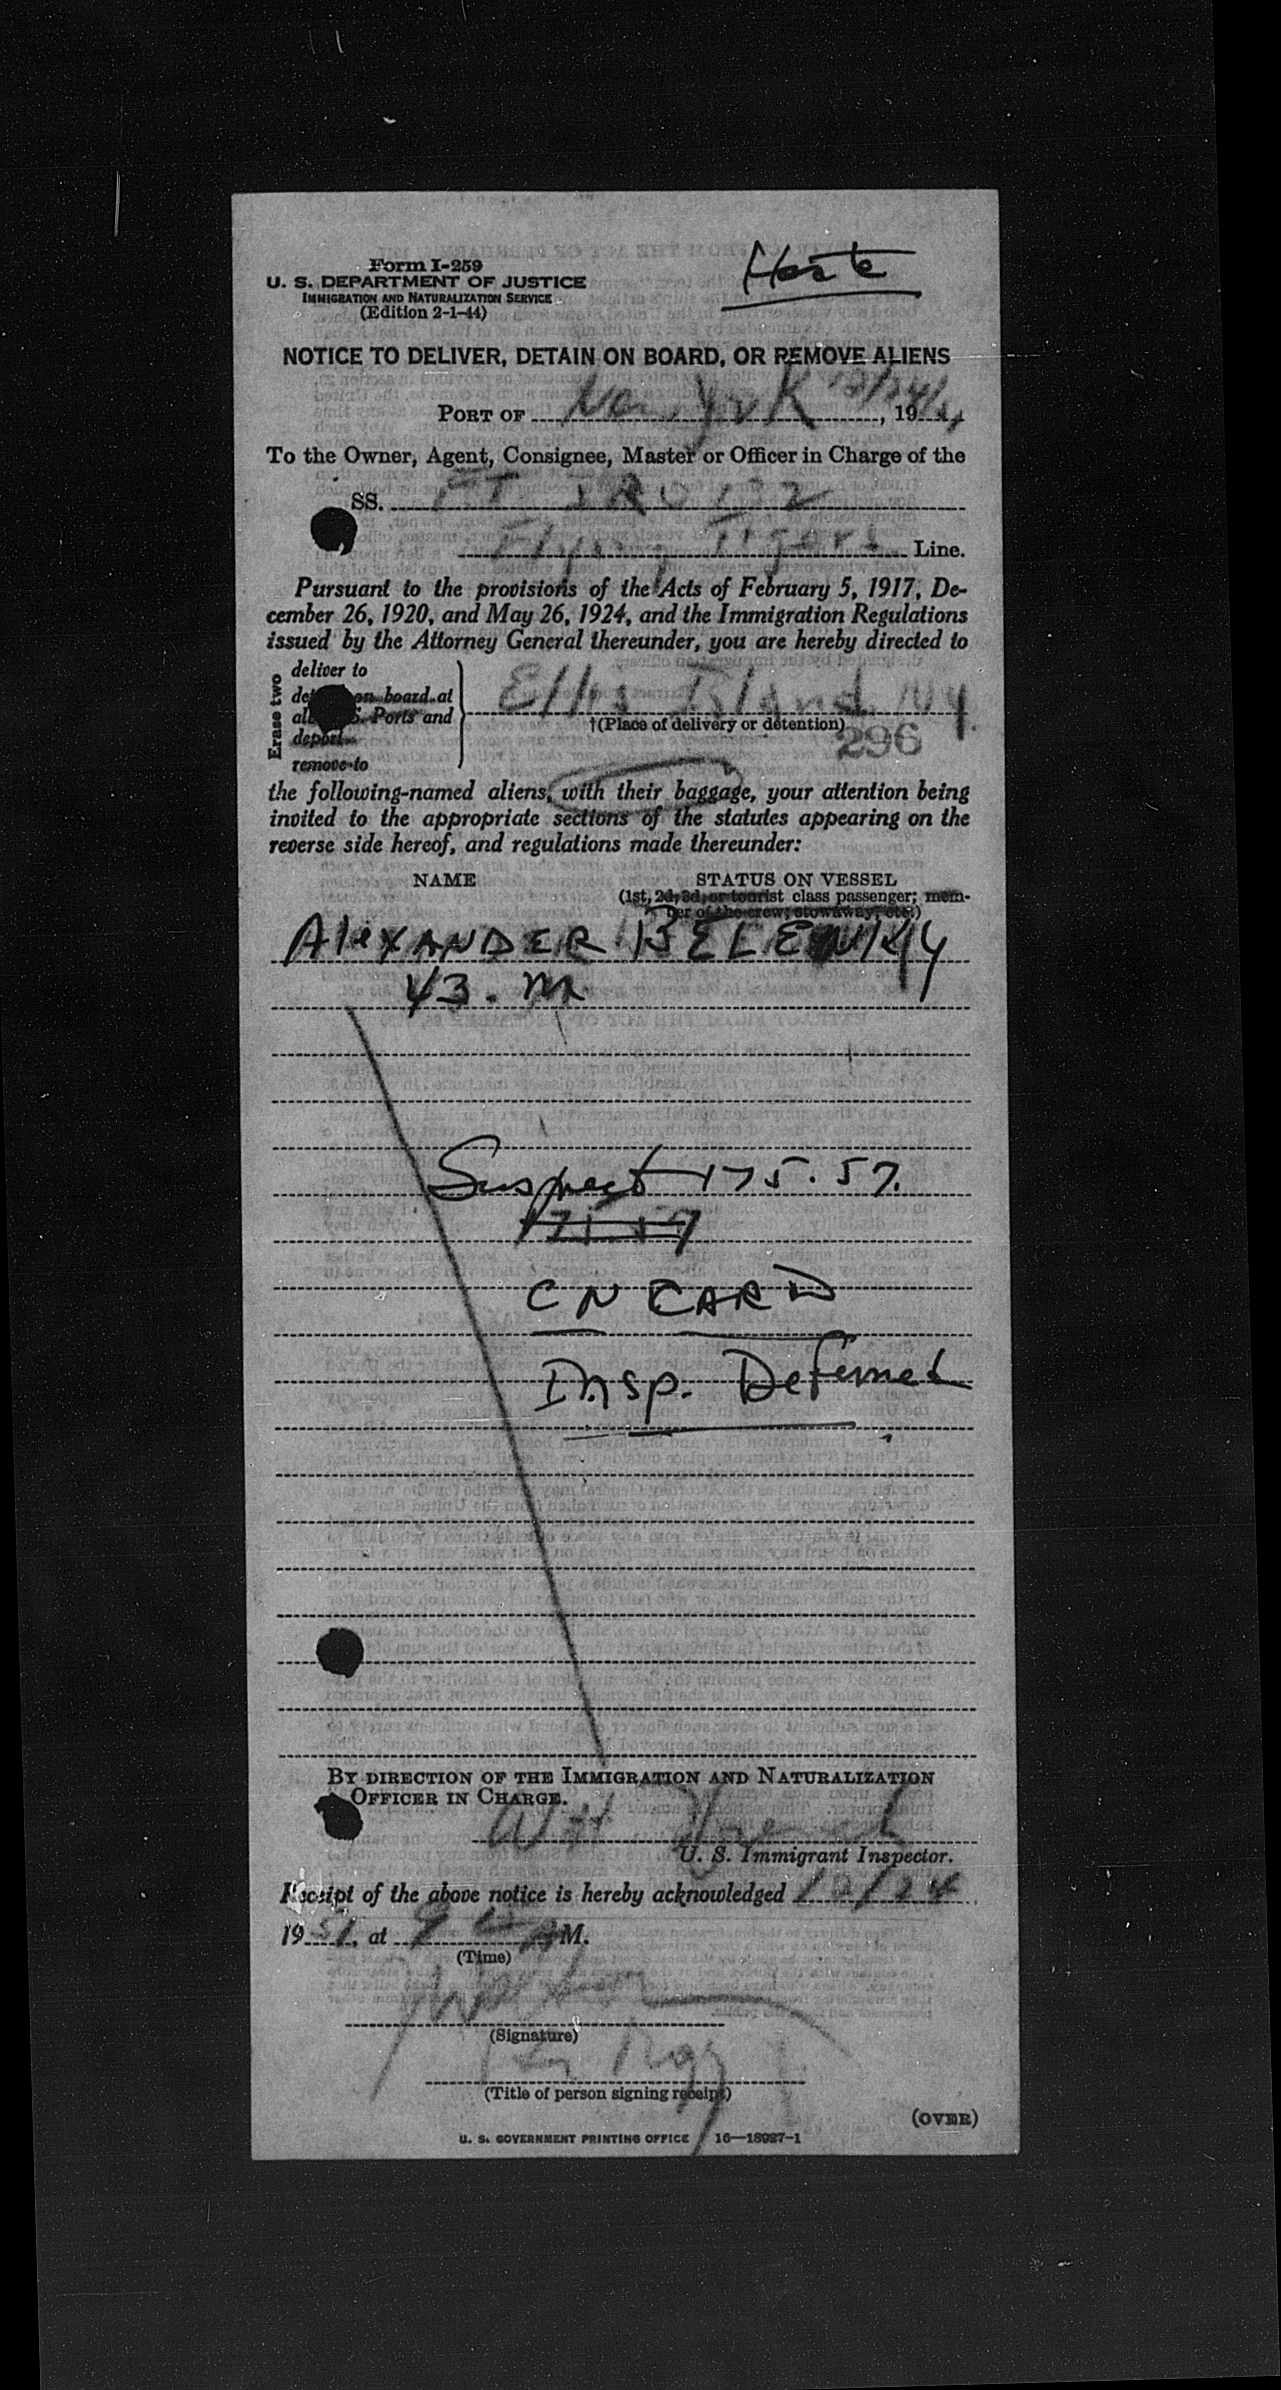 Form I-259
U. S. DEPARTMENT OF JUSTICE
IMMIGRATION AND NATURALIZATION SERVICE
(Edition 2-1-44)
NOTICE TO DELIVER, DETAIN ON BOARD, OR REMOVE ALIENS
PORT OF New York 12/24/, 19
To the Owner, Agent, Consignee, Master or Officer in Charge of the
SS.
Flying Tigers Line.
Pursuant to the provisions of the Acts of February 5, 1917, De-
cember 26, 1920, and May 26, 1924, and the Immigration Regulations
issued by the Attorney General thereunder, you are hereby directed to
Erase two
deliver to
on board at
Ports and
deport
remove to
Ellis Island NY.
†(Place of delivery or detention)
296
the following-named aliens, with their baggage, your attention being
invited to the appropriate sections of the statutes appearing on the
reverse side hereof, and regulations made thereunder:
NAME STATUS ON VESSEL
(1st, 2d, 3d, or tourist class passenger; mem-
ber of the crew; stowaway, etc.)
AlEXANDER
43. M
Suspect 175.57.
CN CARD
Insp. Deferred
BY DIRECTION OF THE IMMIGRATION AND NATURALIZATION
OFFICER IN CHARGE.
U. S. Immigrant Inspector.
Receipt of the above notice is hereby acknowledged 12/24
1951, at M.
(Time)
(Signature)
(Title of person signing receipt)
(OVER)
U. S. GOVERNMENT PRINTING OFFICE 16—18927-1